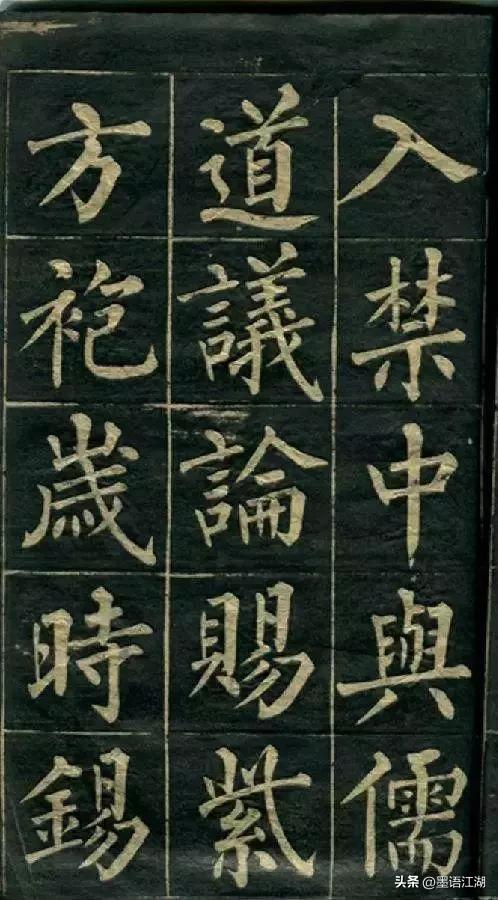 入禁中與儒
道議論賜紫
方袍歲時錫
头条 @墨语江湖